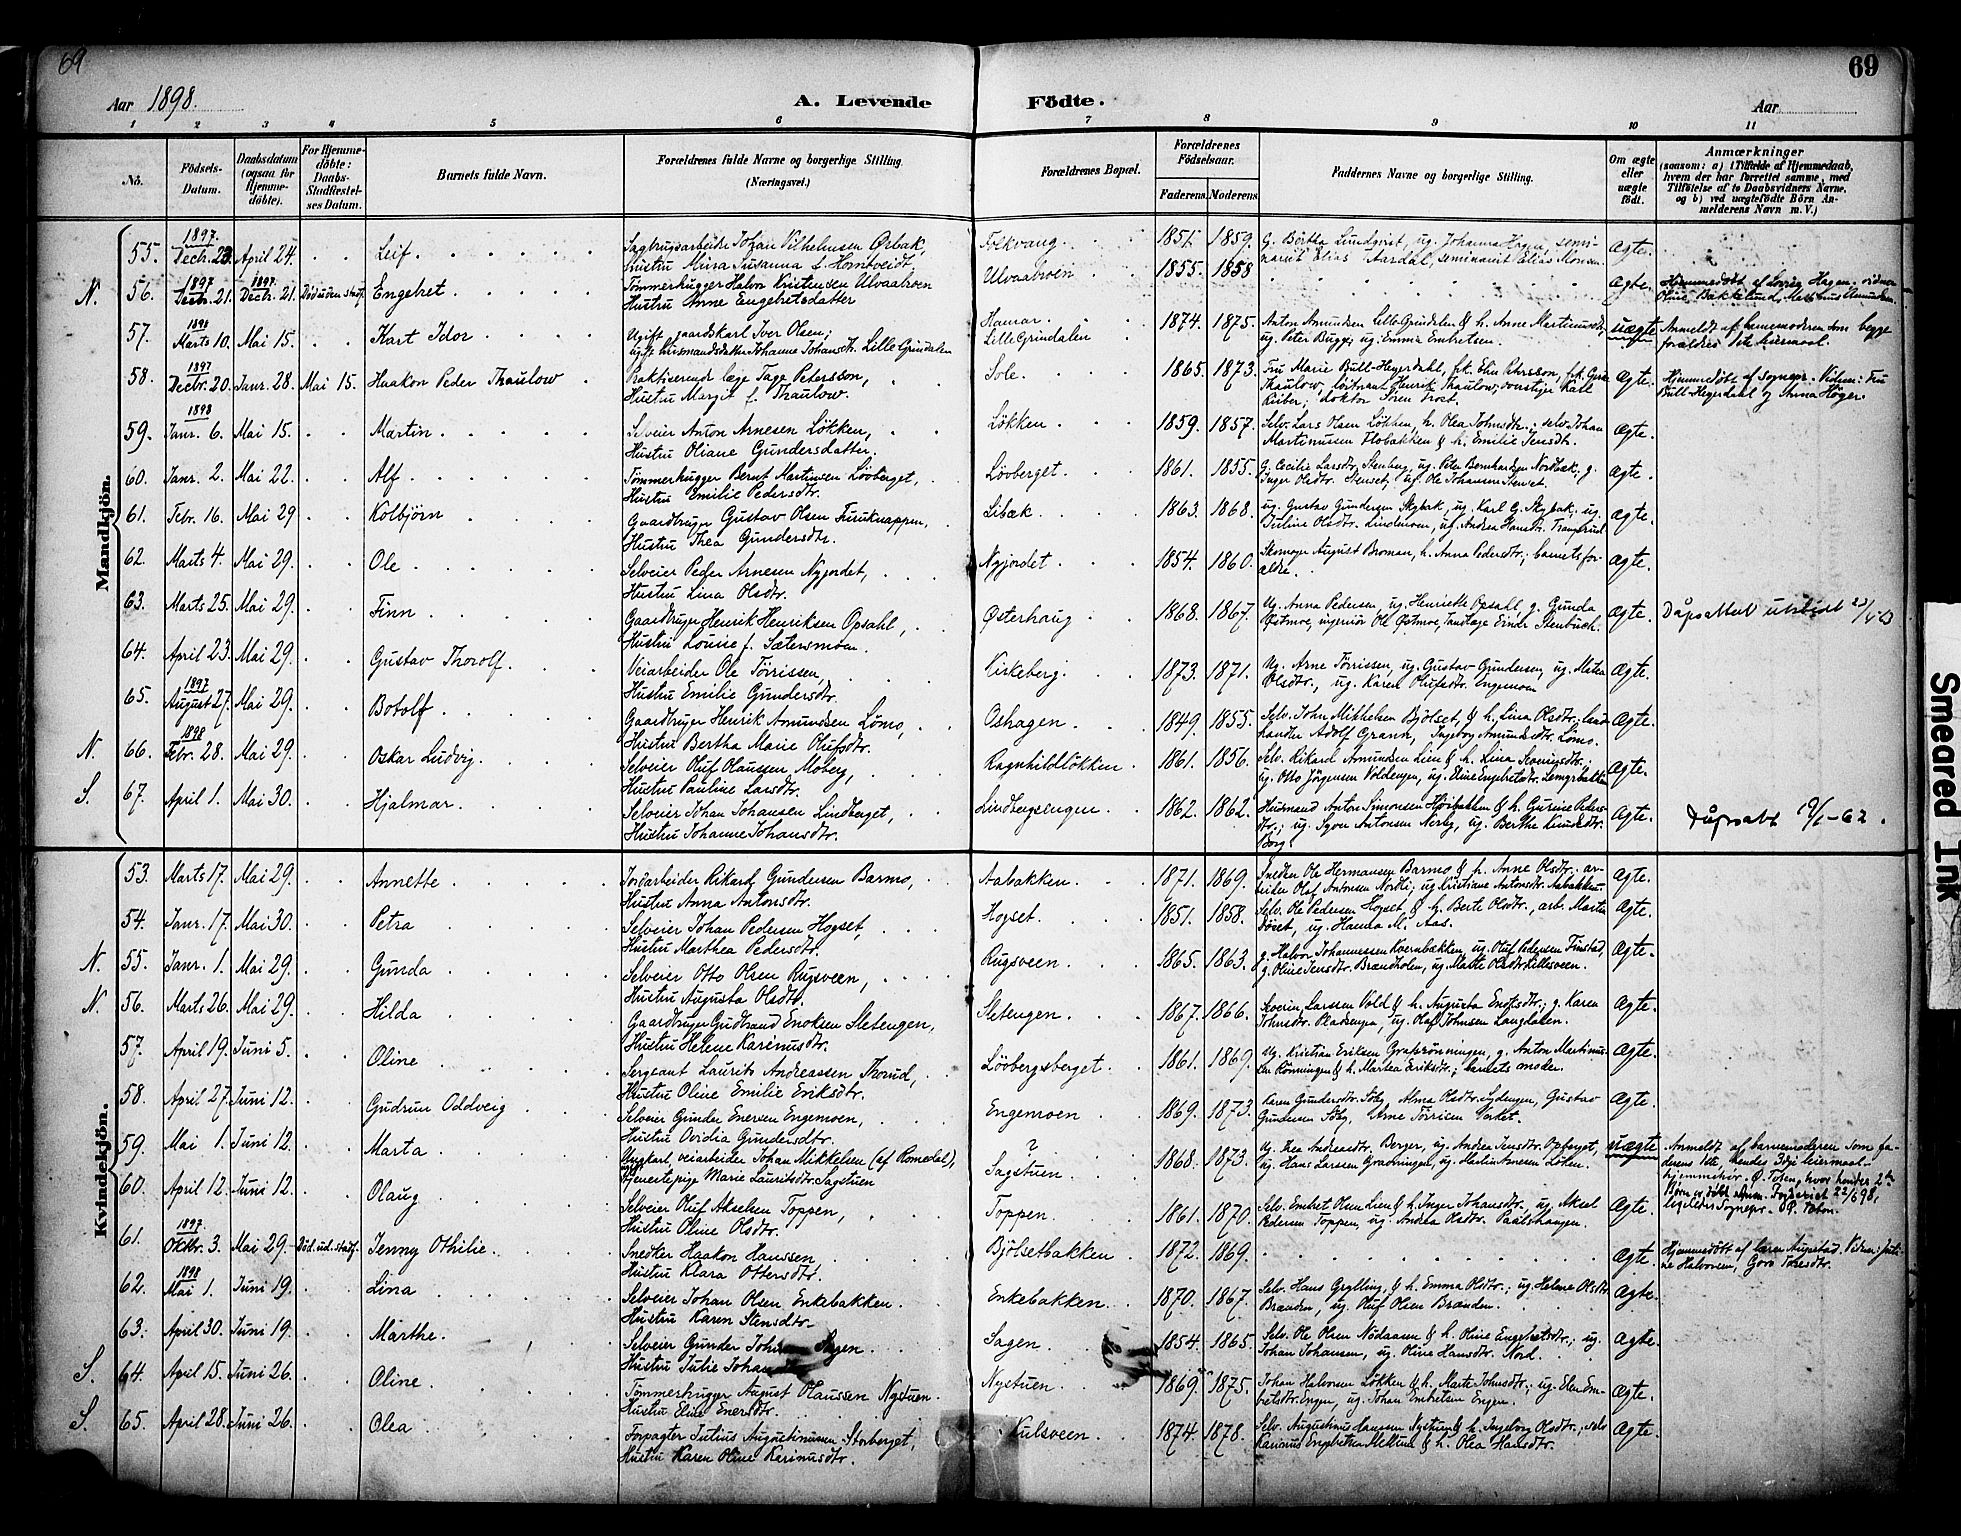 69
69
Aar 1898.
A. Levende Födte.
Aar
1 2 3 4 5 6 7 8 9 10 11
No.
Födsels-Datum.
Daabsdatum (ogsaa for Hjemme-döbte).
For Hjemme-döbte: Daabs-Stadfæstel-ses Datum.
Barnets fulde Navn.
Forældrenes fulde Navne og borgerlige Stilling. (Næringsvei.)
Forældrenes Bopæl.
Forældrenes Födselsaar.
Faderens. Moderens.
Faddernes Navne og borgerlige Stilling.
Om ægte eller uægte födt.
Anmærkninger
(saasom: a) i Tilfælde af Hjemmedaab, hvem der har forrettet samme, med Tilföielse af to Daabsvidners Navne, og b) ved uægtefödte Börn An-melderens Navn m. V.)
Mandkjön.
55. 1897 Decb. 23. April 24. Leif. Sagbrugsarbeider Johan Vilhelmsen Ørbak, Folkvang. 1851. 1859. G. Bertha Lundqvist, ug. Johanna Hagen, semi- Ægte.
Hustru Mina Susanna f. Horntveidt. narist Elias Aardal, seminarist Elias Monsen.
N. 56. 1897 Decbr. 21. 1897 Decbr. 21. Död uden stadf. Engebret. Tömmerhugger Halvor Kristensen Ulvaabroen Ulvaabroen 1855. 1858 Ægte. Hjemmedöbt af
Hustru Anne Engebretsdatter Oline Bakkelund,
57. 1898 Marts 10. Mai 15. Kart Idor Ugift gaardskarl Iver Olsen; Hamar. 1874. 1875. Anton Amundsen Lille Grindalen & h. Anne uægte Anmeldt af barnemoderen som begge
ug. husmandsdatter Johanne Johansdtr. Lille Grindalen Lille Grindalen ug. Peter Bugge, ug. Emma Embretsen. forældres 1ste leiermaal.
58. 1897 Decbr. 20. Janr. 28. Mai 15. Haakon Peder Thaulow Praktiserende læge Tage Petersson, Sole. 1865. 1873. Fru Marie Bull-Heyerdahl, frk. Elin Persson, frk. Ægte. Hjemmedöbt af sognepr. Vidner: Fru
Hustru Margit f. Thaulow. Thaulow, löitnant Henrik Thaulow, Bull-Hegerdahl og Anna Höyer.
doktor Sören Trost.
59. 1898 Janr. 6. Mai 15. Martin. Selveier Anton Arnesen Lökken, Lökken. 1859. 1857. Selv. Lars Olsen Lökken, h. Olea Johnsdtr.; selv. Johan Ægte.
Hustru Oliane Gundersdatter. Martinusen Flobakken & h. Emilie Jensdtr.
60. Janr. 2. Mai 22. Alf. Tömmerhugger Bernt Martinsen Lövberget, Lövberget. 1861. 1855. G. Cecilie Larsdtr. Stenberg, ug. Peter Bernhardsen Nordbæk; g. Ægte.
Hustru Emilie Pedersdtr. Inger Olsdtr. Stenset; ug. Ole Johansen Stenset.
61. Febr. 16. Mai 29 Kolbjörn Gaardbruger Gustav Olsen Furuknappen, Libæk. 1863. 1868. ug. Gustav Gundersen Skybak, ug. Karl G. Skybak; ug. Ægte.
Hustru Thea Gundersdtr. Juline Olsdtr. Lindmoen, ug. Andrea Hansdtr.
62. Marts 4. Mai 29. Ole Selveier Peder Arnesen Nyjordet, Nyjordet. 1854. 1860. Skomager August Broman, h. Anna Pedersdtr.; barnets for- Ægte.
Hustru Lina Olsdtr. ældre.
63. Marts 25. Mai 29. Finn Gaardbruger Henrik Henriksen Opsahl, Østerhaug 1868. 1867. Ug. Anna Pedersen, ug. Henriette Opsahl, g. Gunda Ægte. Dåpsattest utstedt
Hustru Louise f. Sætersmoen. Østmoe, ingeniör Ole Østmoe, tandlæge Einar Stenbuch.
64. April 23. Mai 29. Gustav Thorolf. Veiarbeider Ole Törrissen, Kirkeberg. 1873. 1871. Ug. Arne Törrissen, ug. Gustav Gundersen, ug. Ægte.
Hustru Emilie Gundersdtr. Olsdtr., ug. Karen Olufsdtr. Engemoen
65. 1897 August 27. Mai 29. Botolf Gaardbruger Henrik Amundsen Lömo, Oshagen 1849. 1855. Selv. John Mikkelsen Bjölset, & h. Lina Olsdtr.; land- Ægte.
Hustru Bertha Marie Olufsdtr. handler Adolf Grann, Ingeborg Amundsdtr. Lömo.
N. 66. 1898 Febr. 28. Mai 29. Oskar Ludvig. Selveier Oluf Olaussen Moberg, Ragnhildlökken 1861. 1856. Selv. Rikard Amundsen Lien & h. Lina Ægte.
Hustru Pauline Larsdtr. ug. Otto Jörgensen Voldengen, ug. Eline Engebretsdtr.
S. 67. April 1. Mai 30. Hjalmar. Selveier Johan Johansen Lindberget, Lindbergsengen 1862. 1862. Husmand Anton Simonsen Høibakken & h. Gurine Peders- Ægte. Dåpsatt
Hustru Johanne Johansdtr. dtr.; ug. Syver Antonsen Nerby, ug. Berthe Knudsdtr.
Berg.
Kvindekjön.
53. Marts 17. Mai 29. Annette Jordarbeider Rikard Gundersen Barmo, Aabakken. 1871. 1869. Snedker Ole Hermansen Barmo & h. Anne Olsdtr.; ar- Ægte.
Hustru Anna Antonsdtr. beider Olaf Antonsen Nordli; ug. Kristiane Antonsdtr. Aabakken.
54. Janr. 17. Mai 30. Petra Selveier Johan Pedersen Hogset, Hogset. 1851. 1858. Selv. Ole Pedersen Hogset & h. Berte Olsdtr., arb. Martin Ægte.
Hustru Marthea Pedersdtr. ug. Hanna M. Aas.
N. 55. Janr. 1. Mai 29. Gunda Selveier Otto Olsen Rugsveen, Rugsveen 1865. 1863. g. Halvor Johannessen Kvernbækken, ug. Oluf Pedersen Finstad, Ægte.
Hustru Augusta Olsdtr. g. Oline Jensdtr. Brændholen, ug. Marte Olsdtr. Lillesveen.
N. 56. Marts 26. Mai 29. Hilda Gaardbruger Gudbrand Enoksen Sletengen, Sletengen. 1867. 1866. Severin Larssen Vold & h. Augusta; g. Karen Ægte.
Hustru Helene Karinusdtr. Johnsdtr. Pladsengen, ug. Olaf Johnsen Langdalen.
57. April 19. Juni 5. Oline Sergeant Laurits Andreassen Thorud, Lövbergsberget. 1861. 1869. Ug. Kristian Eriksen Grafsrönningen, g. Anton Martinus- Ægte.
Hustru Oline Emilie Eriksdtr. sen Rönningen & h. Marthea Eriksdtr.; barnets moder.
58. April 27. Juni 12. Gudrun Oddveig Selveier Gunder Enersen Engemoen, Engemoen 1869. 1873. Karen Gundersdtr. Alma Olsdtr. Nydengen, Gustav Ægte.
Hustru Ovidia Gundersdtr. Gundersen Arne Törrisen
59. Mai 1. Juni 12. Marta Ungkarl, veiarbeider Johan Mikkelsen (af Romedal), ? 1868. 1873. Ug. Thea Andreasdtr. Berger, ug. Andrea Jensdtr. Opberget, uægte Anmeldt af barnemoderen som fa-
tjenestepige Marie Lauritsdtr. Sagstuen Sagstuen ug. Hans Larssen Graavningen, ug. Martin Arnesen Löken. derens 1ste, hendes 3die leiermaal.
hjemmehör. Ø. Toten, hvor hendes 2de
60. April 12. Juni 12. Olaug Selveier Oluf Akselsen Toppen, Toppen. 1861. 1870. Selv. Embret Olsen Lien & h. Inger Johansdtr. ug. Aksel Ægte. Börn er födt.
Hustru Oline Olsdtr. Pedersen Toppen, ug. Andrea Olsdtr. Paalshaugen.
61. 1897 Oktbr. 3. Mai 29. Död. ud. stadf. Jenny Othilie. Snedker Haakon Hanssen Bjölsetbakken 1872. 1869. Ægte. Hjemmedöbt af Karen Augestad. Vidner:
Hustru Klara Ottersdtr. Halvorsen, Goro Toresdtr.
62. 1898 Mai 1. Juni 19. Lina Selveier Johan Olsen Enkebakken. Enkebakken. 1870. 1867. Selv. Hans Grylling & h. Emma Olsdtr.; ug. Helene Olsdtr. Ægte.
Hustru Karen Stensdtr. Brænden, ug. Oluf Olsen Brænden.
63. April 30. Juni 19. Marthe. Selveier Gunder Sagen. Sagen 1854. 1865. Selv. Ole Olsen Nødaasen & h. Oline Engebretsdtr.; ug. Ægte.
Hustru Julie Johan Johan Johansen, ug. Oline Hansdtr. Nord.
S. 64. April 15. Juni 26. Oline. Tömmerhugger August Olaussen Nystuen. Nystuen 1869. 1875. Johan Halvorsen Lökken & h. Marte Johnsdtr.; ug. Elen Em- Ægte.
Hustru Eline Enersdtr. bretsdtr. Engen, ug. Johan Embretsen Engen.
S. 65. April 28. Juni 26. Olea Forpagter Julius Augustinusen Storberget, Kulsveen. 1874. 1878. Selv. Augustinus Hanssen Nystuen & h. Ingeborg Olsdtr.; selv. Ægte.
Hustru Karen Oline Karinusdtr. Karinus Engebretsen Mellum & h. Olea Hansdtr.
Smeared Ink